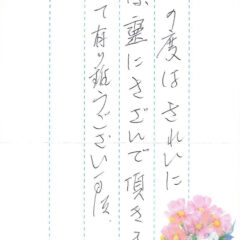 の度はきれいに
にきざんで頂き
て有り難うござい